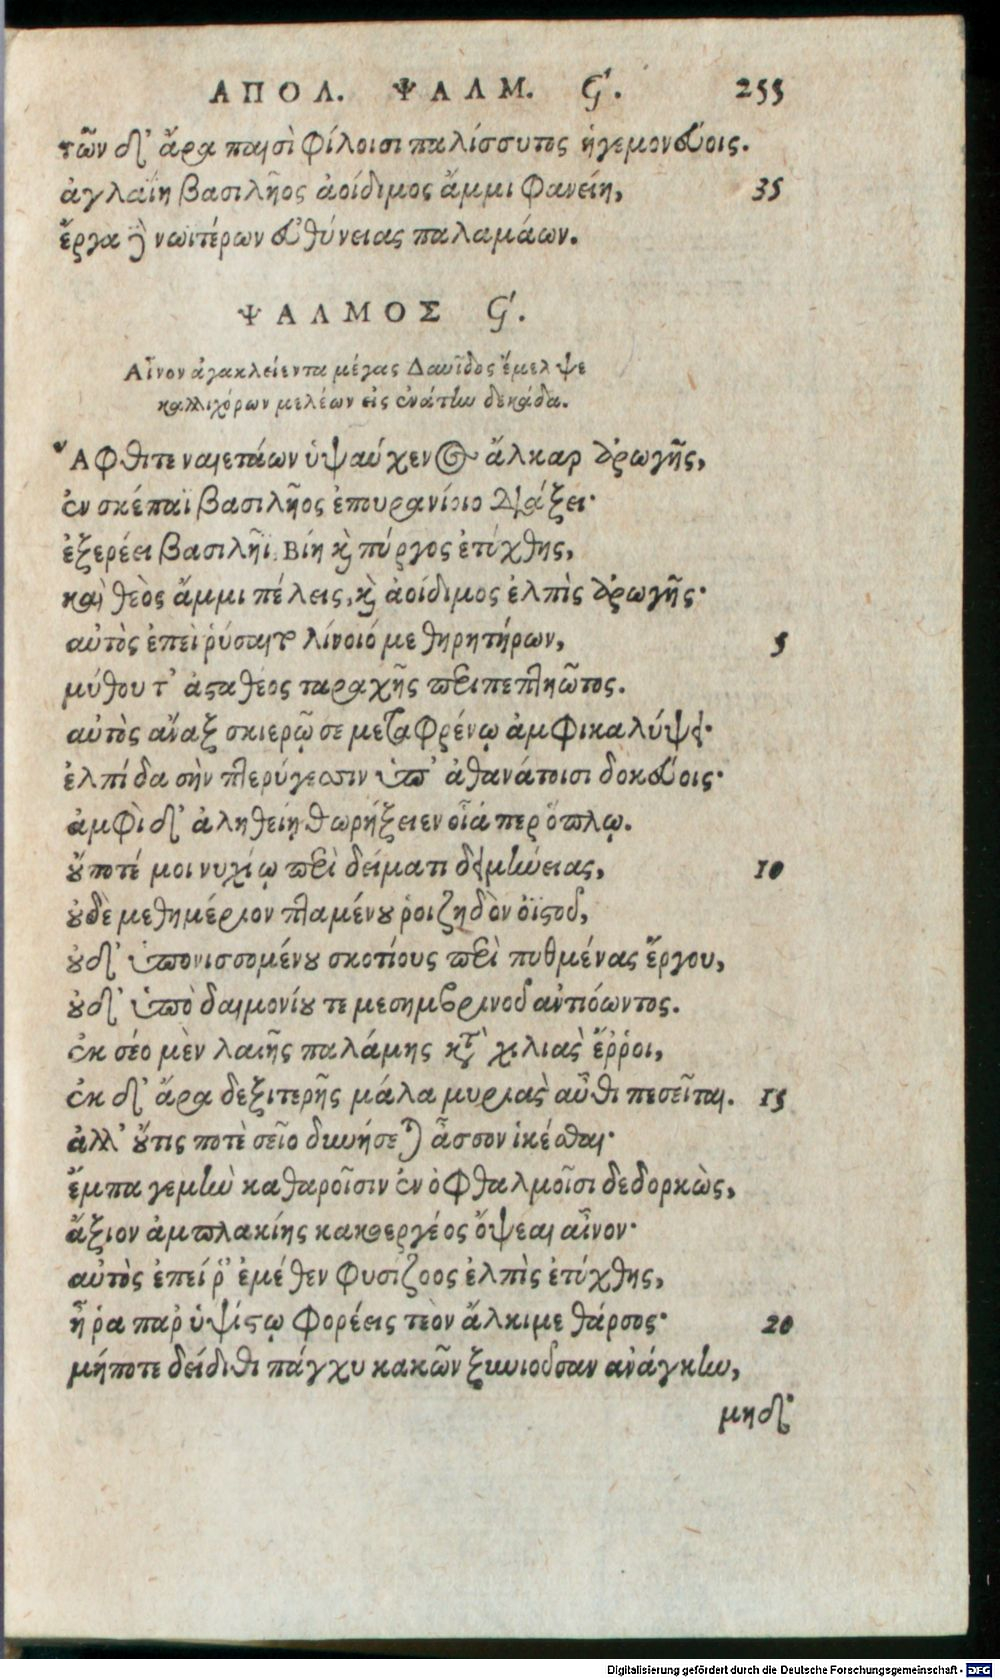 ΑΠΟΛ. ΨΑΛΜ. Ϟʹ. 255
τῶν δ᾽ ἄρα παισὶ φίλοισι παλίσσυτος ἡγεμονεύοις.
ἀγλαΐη βασιλῆος ἀοίδιμος ἄμμι φανείη, 35
ἔργα δὲ νωϊτέρων εὐθύνειας παλαμάων.
ΨΑΛΜΟΣ Ϟʹ.
Αἶνον ἀγακλείεντα μέγας Δαυῖδος ἔμελψε
καλλιχόρων μελέων εἰς ἐνάτην δεκάδα.
Ἄφθιτε ναιετάων ὑψαύχενος ἄλκαρ ἀρωγῆς,
ἐν σκέπαϊ βασιλῆος ἐπουρανίοιο διάξει·
ἐξερέει βασιλῆϊ, Βίη καὶ πύργος ἐτύχθης,
καὶ θεὸς ἄμμι πέλεις, καὶ ἀοίδιμος ἐλπὶς ἀρωγῆς·
αὐτὸς ἐπεὶ ῥύσαιτο λίνοιό με θηρητήρων, 5
μύθου τ᾽ ἀσταθέος ταραχῆς περιπεπληῶτος.
αὐτὸς ἄναξ σκιερῷ σε μεταφρένῳ ἀμφικαλύψει·
ἐλπίδα σὴν πτερύγεσσιν ὑπ᾽ ἀθανάτοισι δοκεύοις·
ἀμφὶ δ᾽ ἀληθείῃ θωρήξειεν οἷά περ ὅπλῳ.
οὔποτέ μοι νυχίῳ περὶ δείματι δειμήνειας, 10
οὐδὲ μεθημέριον πταμένου ῥοιζηδὸν ὀϊστοῦ,
οὐδ᾽ ὑπονισσομένου σκοτίους περὶ πυθμένας ἔργου,
οὐδ᾽ ὑπὸ δαιμονίου τε μεσημβρινοῦ ἀντιόωντος.
ἐκ σέο μὲν λαιῆς παλάμης κατὰ χιλιὰς ἔρροι,
ἐκ δ᾽ ἄρα δεξιτερῆς μάλα μυριὰς αὖθι πεσεῖται. 15
ἀλλ᾽ οὔτις ποτὲ σεῖο δυνήσεται ἆσσον ἱκέσθαι·
ἔμπα γε μὴν καθαροῖσιν ἐν ὀφθαλμοῖσι δεδορκὼς,
ἄξιον ἀμπλακίης κακοεργέος ὄψεαι αἶνον·
αὐτὸς ἐπεί ῥ᾽ ἐμέθεν φυσίζοος ἐλπὶς ἐτύχθης,
ἦ ῥα παρ᾽ ὑψίστῳ φορέεις τεὸν ἄλκιμε θάρσος· 20
μήποτε δείδιθι πάγχυ κακῶν ξυνιοῦσαν ἀνάγκην,
μηδ᾽
Digitalisierung gefördert durch die Deutsche Forschungsgemeinschaft - DFG